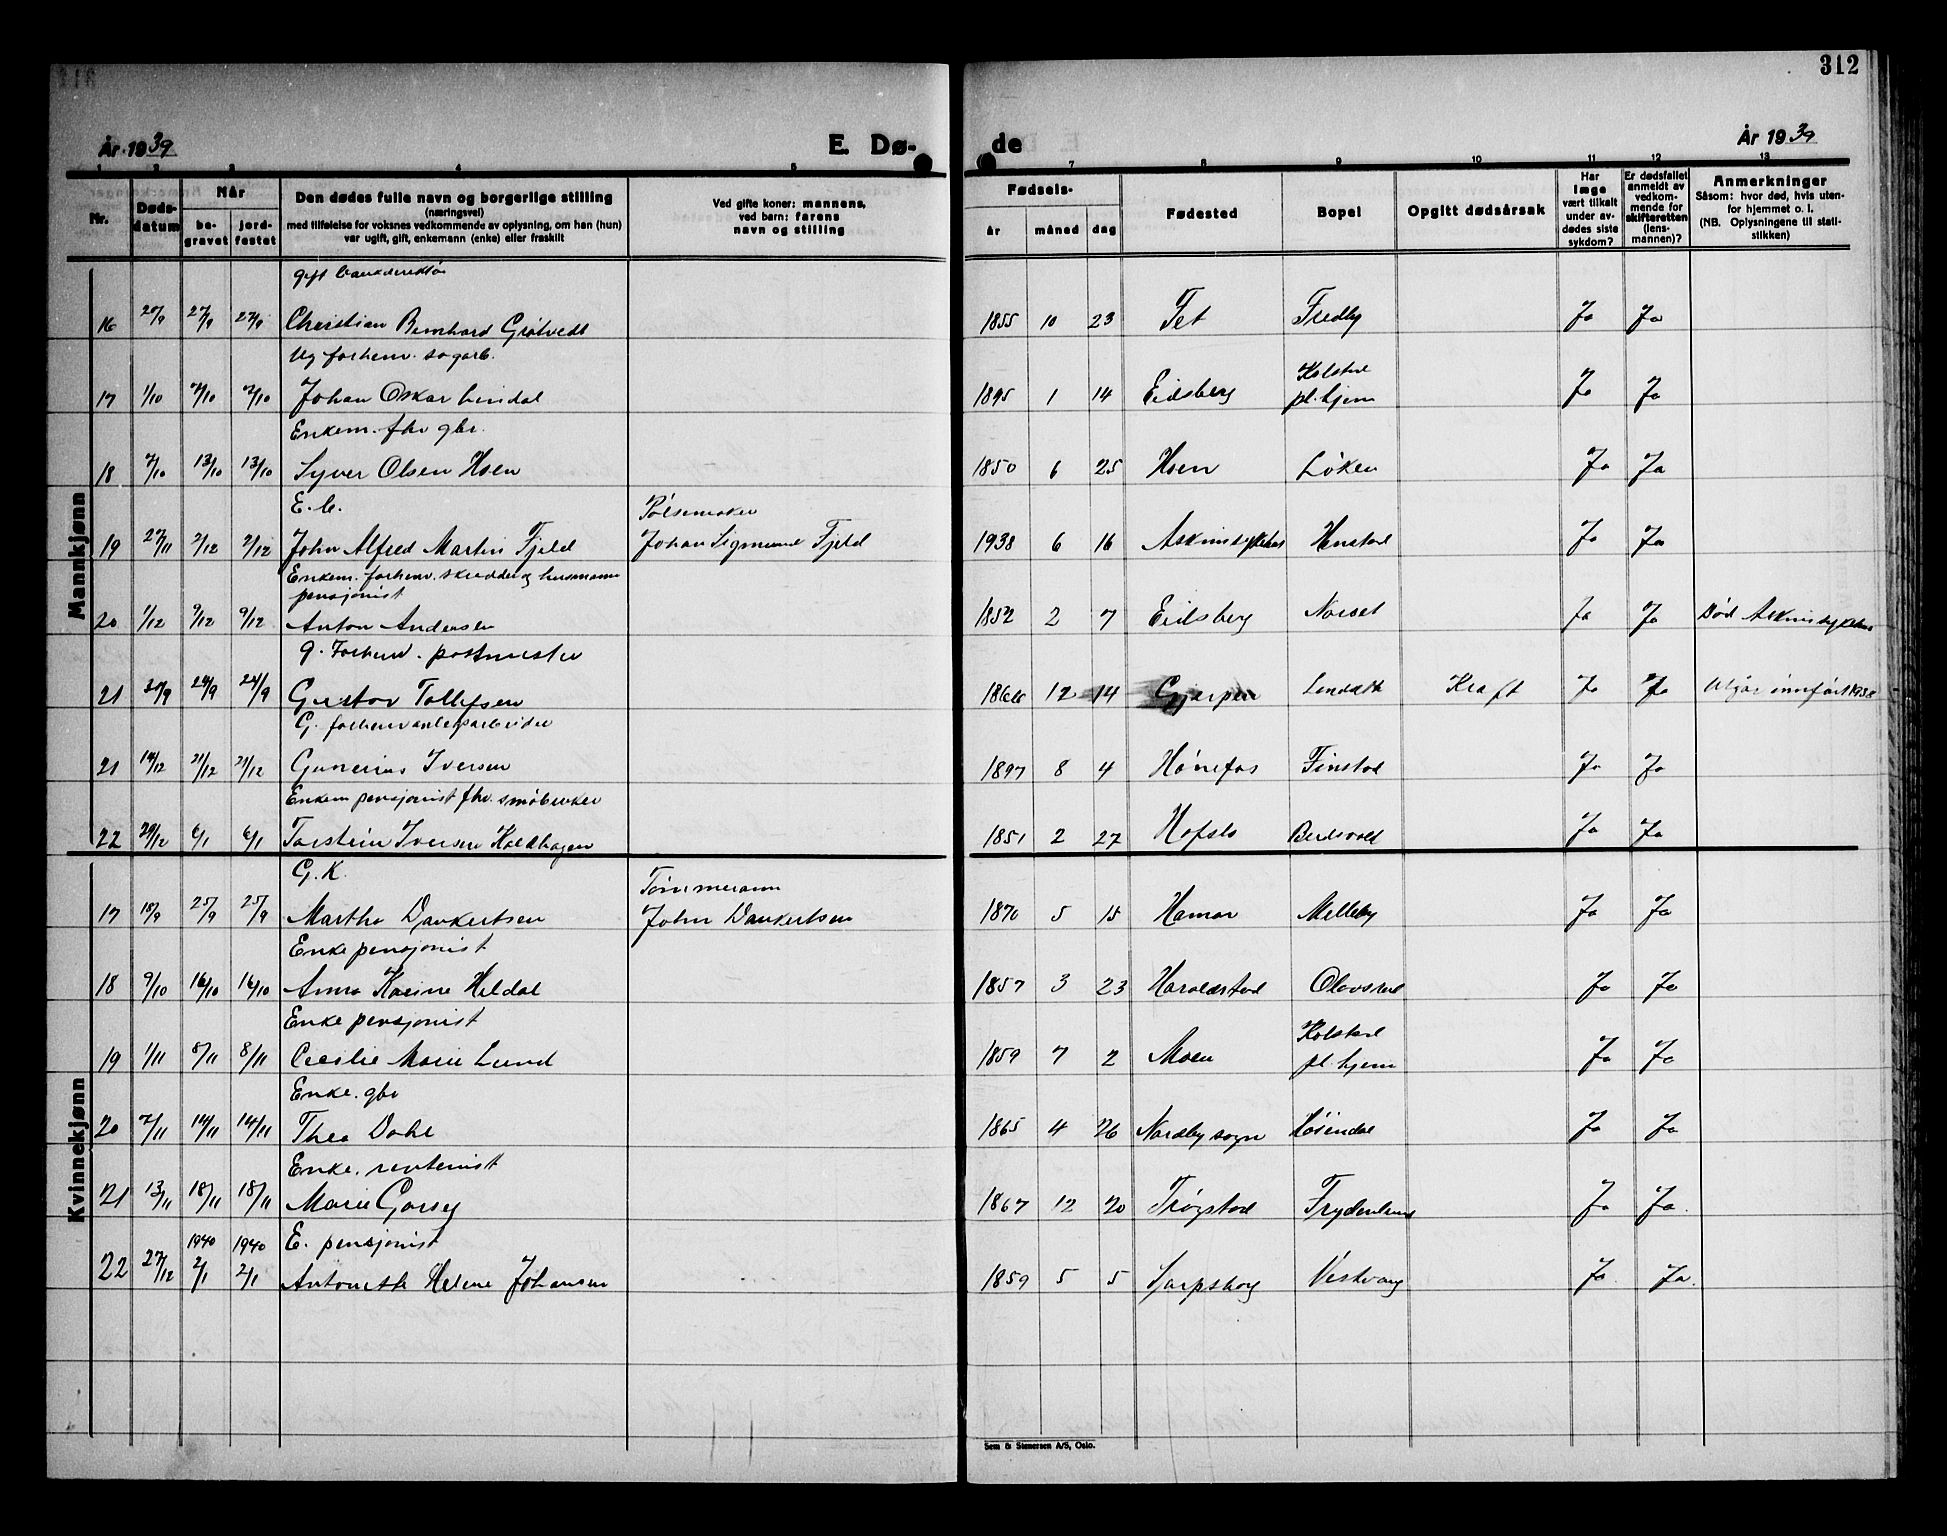 312
År 1939
E. Dø-
de
År 1939
1 2 3 4 5 7 8 9 10 11 12 13
Nr.
Døds-
datum
Når
be-
gravet
jord-
festet
Den dødes fulle navn og borgerlige stilling
(næringsvei)
med tilføielse for voksnes vedkommende av oplysning, om han (hun)
var ugift, gift, enkemann (enke) eller fraskilt
Ved gifte koner: mannens,
ved barn: farens
navn og stilling
Fødsels-
år måned dag
Fødested
Bopel
Opgitt dødsårsak
Har
læge
vært tilkalt
under av-
dødes siste
sykdom?
Er dødsfallet
anmeldt av
vedkom-
mende for
skifteretten
(lens-
mannen)?
Anmerkninger
Såsom: hvor død, hvis uten-
for hjemmet o. l.
(NB. Oplysningene til stati-
stikken)
Mannkjønn
gift bankdirektør
16 27/9 27/9 Christian Bernhard Grøtvedt 1855 10 23 Fet Fredby Ja Ja
Ug forhenv. sagarb. Kolstad
17 1/10 7/10 7/10 Johan Oskar Lindal 1895 1 14 Eidsberg pl.hjem Ja Ja
Enkem. fhv gbr.
18 7/10 13/10 13/10 Syver Olsen Hoen 1850 6 25 Hoen Løken Ja Ja
E. b. Pølsemaker
19 27/11 2/12 2/12 John Alfred Martin Fjeld Johan Sigmund Fjeld 1938 6 16 Askimsykehus Henstad Ja Ja
Enkem. forhenv. skredder og husmann
pensjonist
20 1/12 9/12 9/12 Anton Andersen 1852 2 7 Eidsberg Norset Ja Ja Død Askimsykehus
g. Forhenv. postmester
21 20/9 24/9 24/9 Gustav Tollefsen 1866 12 14 Gjerpen Kraft Ja Ja innført 1938
G. forhenv anlegsarbeider
21 14/12 21/12 21/12 Gunerius Iversen 1897 8 4 Hønefos Finstad Ja Ja
Enkem pensjonist fhv. småbruker
22 29/12 6/1 6/1 Torstein Iversen Koldhagen 1851 2 27 Hofslo Ja Ja
Kvinnekjønn
G. K. Tømmermann
17 18/9 25/9 25/9 Martha Dankertsen John Dankertsen 1870 5 15 Hamar Melleby Ja Ja
Enke pensjonist
18 9/10 16/10 16/10 Anna Karine Heldal 1857 3 23 Haraldstad Olavstad Ja Ja
Enke pensjonist Kolstad
19 1/11 8/11 8/11 Cecilie Marie Lund 1859 7 2 Moen pl. hjem Ja Ja
Enke. gbr
20 7/11 14/11 14/11 Thea Dahl 1865 4 26 Nordby sogn Ja Ja
Enke. rentenist
21 13/11 18/11 18/11 Marie Garsey 1867 12 20 Trøgstad Frydenlund Ja Ja.
1940 1940 E. pensjonist
22 27/12 2/1 2/1 Antonette Helene Johansen 1859 5 5 Sarpsborg Vestvang Ja. Ja.
Sem & Stenersen A/S, Oslo.